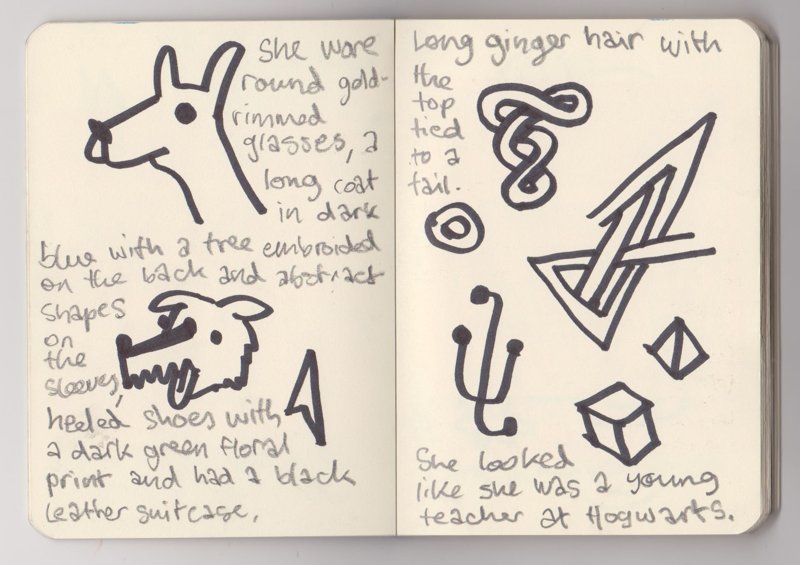 She wore
round gold-
rimmed
glasses, a
long coat
in dark
blue with a tree embroided
on the back and abstract
shapes
on
the
sleeves,
heeled shoes with
a dark green floral
print and had a black
leather suitcase.
Long ginger hair with
the
top
tied
to a
tail.
She looked
like she was a young
teacher at Hogwarts.